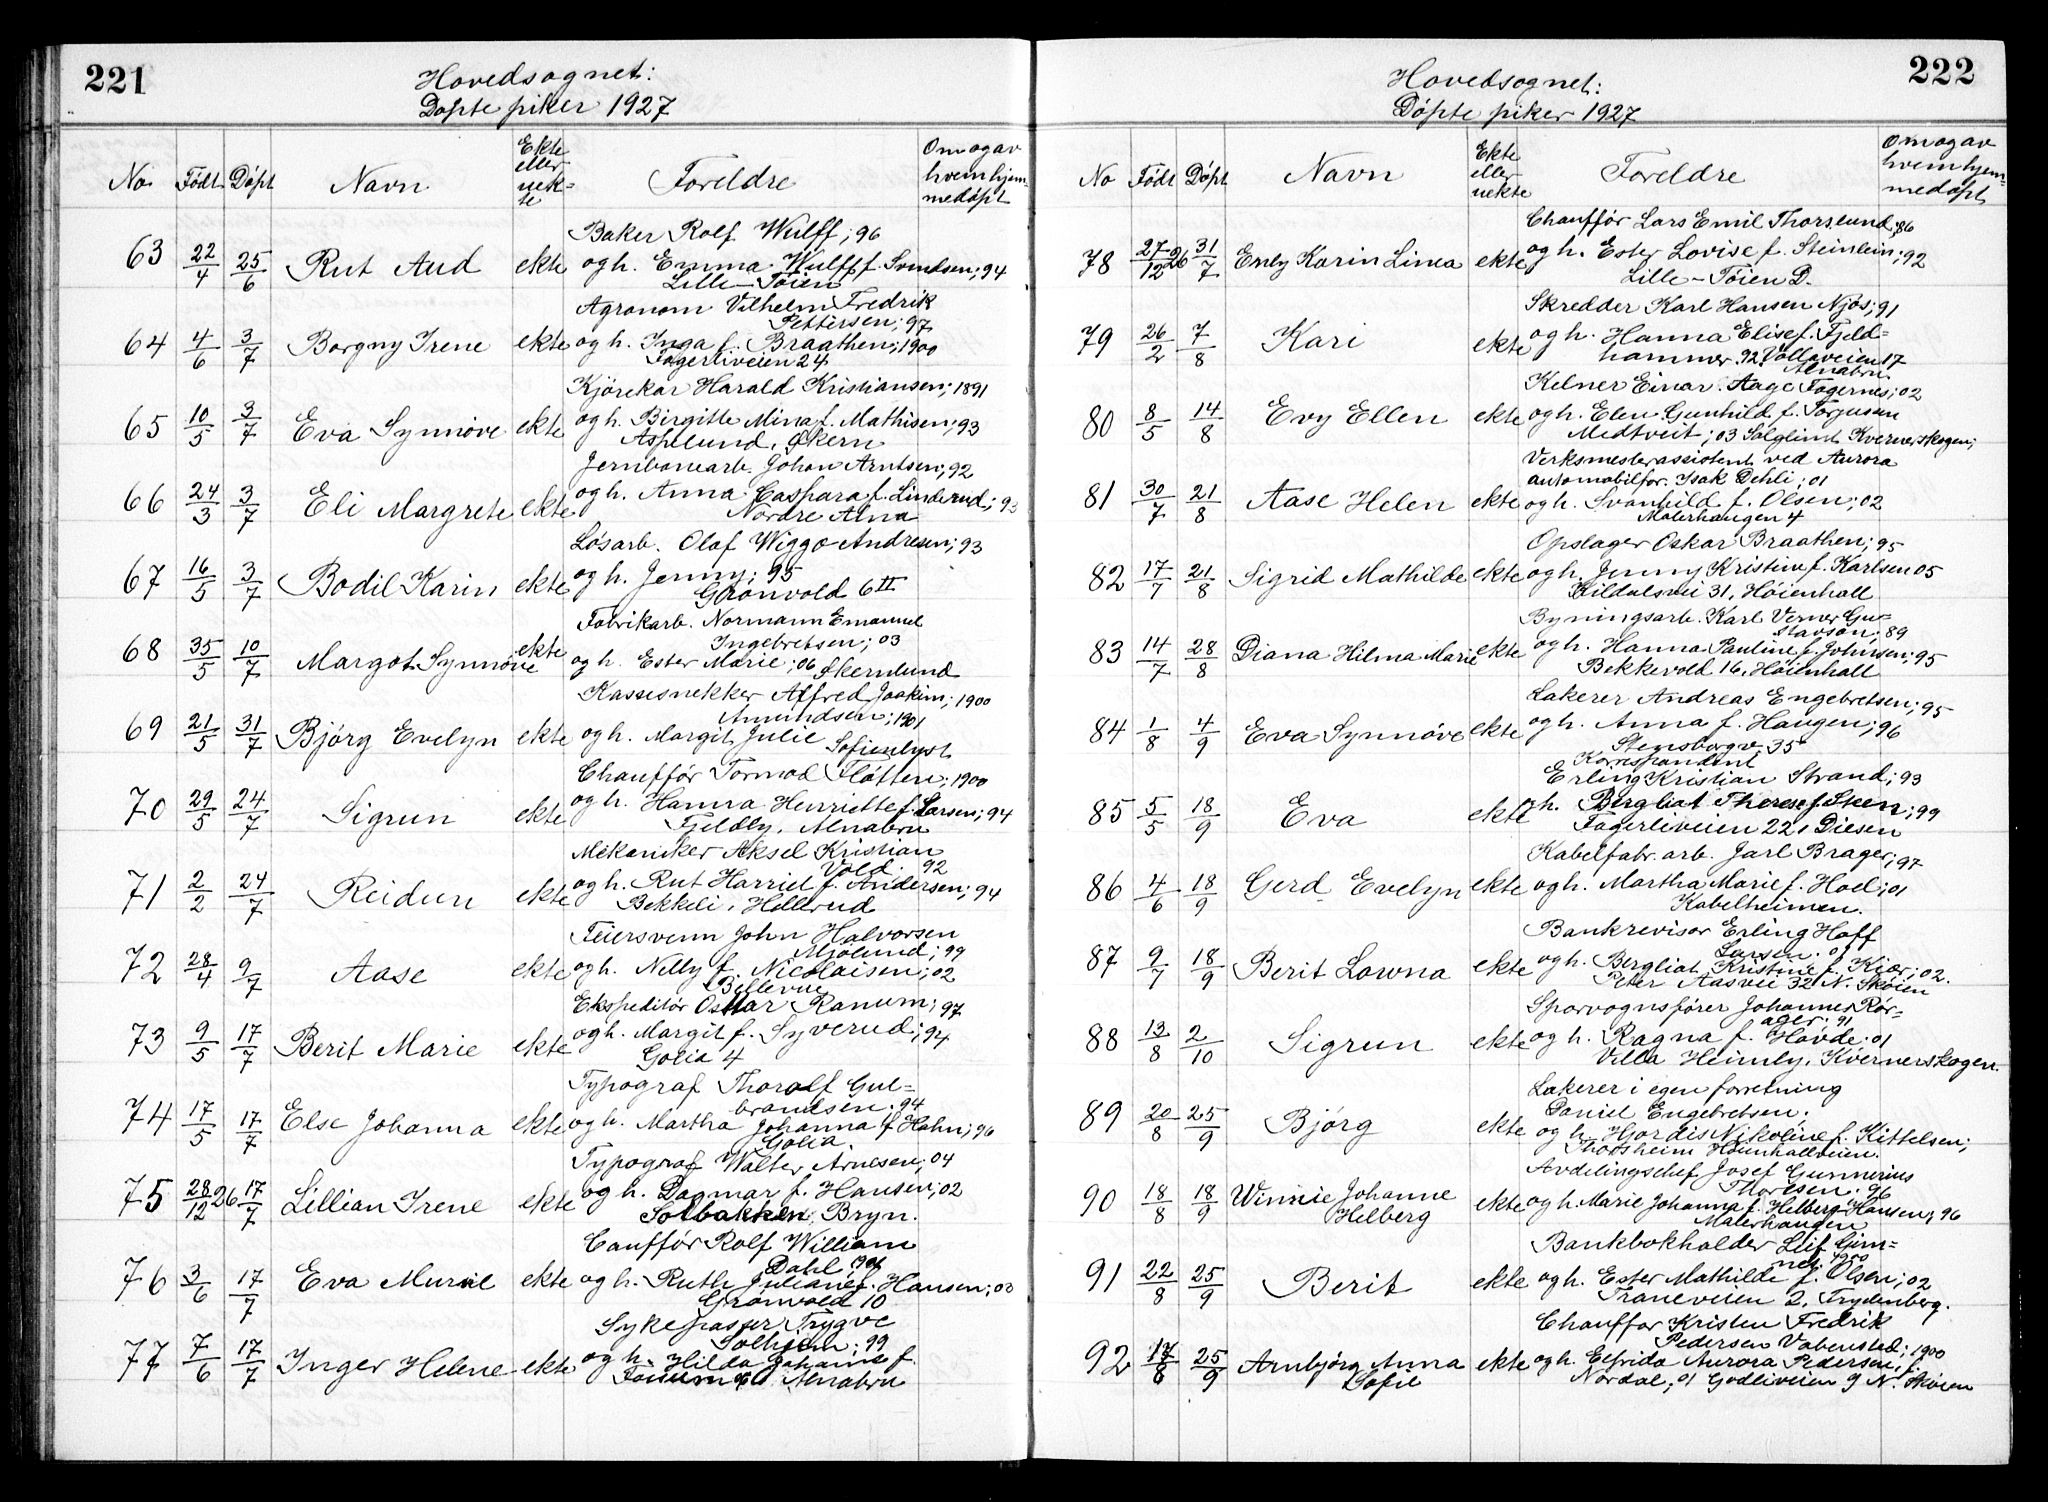 221
Hovedsognet:
Døpte piker 1927
No. Født Døpt Navn Ekte eller uekte Foreldre Om og av hvem hjemmedøpt
Baker Rolf Wulff; 96
63 22/4 25/6 Rut Aud ekte og h. Emma Wulff f. Svendsen; 94
Lille-Tøien
Agronom Vilhelm Fredrik
Pettersen; 97
64 4/6 3/7 Borgny Irene ekte og h. Inga f. Braathen; 1900
Fagerliveien 24
Kjørekar Harald Kristiansen; 1891
65 10/5 3/7 Eva Synnøve ekte og h. Birgitte Mina f. Mathisen; 93
Aspelund, Økern
Jernbanearb. Johan Arntsen; 92
66 24/3 3/7 Eli Margrete ekte og h. Anna Caspara f. Linderud; 93
Nordre Alna
Løsarb. Olaf Wiggo Andresen; 93
67 16/5 3/7 Bodil Karin ekte og h. Jenny; 95
Grønvold 6 II
Fabrikarb. Normann Emanuel
Ingebretsen; 03
68 35/5 10/7 Margot Synnøve ekte og h. Ester Marie; 06 Økernlund
Kassesnekker Alfred Joakim; 1900
Amundsen; 1901
69 21/5 31/7 Bjørg Evelyn ekte og h. Margit Julie Sofienlyst
Chauffør Tormod Fløtten; 1900
70 29/5 24/7 Sigrun ekte og h. Hanna Henriette f. Larsen; 94
Fjeldly, Alnabru
Mekaniker Aksel Kristian
Vold. 92
71 2/2 24/7 Reidun ekte og h. Rut Harriet f. Andersen; 94
Bekkeli, Hellerud
Feiersvenn John Halvorsen
Mjølund; 99
72 28/4 9/7 Aase ekte og h. Nelly f. Nicolaisen; 02
Bellevue
Ekspeditør Oskar Ranum; 97
73 9/5 17/7 Berit Marie ekte og h. Margit f. Syverud; 94
Golia 4
Typograf Thoralf Gul=
brandsen. 94
74 17/5 17/7 Else Johanna ekte og h. Martha Johanna f. Hahn; 96
Golia.
Typograf Walter Arnesen; 04
75 28/12 26 17/7 Lillian Irene ekte og h. Dagmar f. Hansen; 02
Solbakken, Bryn.
Cauffør Rolf William
Dahl,
76 3/6 17/7 Eva ekte og h. Ruth Juliane f. Hansen; 03
Grønvold 10
Sykepasser Trygve
Solheim; 99
77 7/6 17/7 Inger Helene ekte og h. Hilda Johanne f.
Alnabru
222
Hovedsognet:
Døpte piker 1927
No Født Døpt Navn Ekte eller uekte Foreldre Om og av hvem hjemmedøpt
Chauffør Lars Emil Thorslund, 86
78 27/12 26 31/7 Enly Karin Linea ekte og h. Ester Lovise f. Steinlein; 92
Lille-Tøien D.
Skredder Karl Hansen Njøs; 91
79 26/2 7/8 Kari ekte og h. Hanna Elise f. Fjeld=
hammer. 92, Vollaveien 17
Alnabru
Kelner Einar Aage Fagernes; 02
80 8/5 14/8 Evy Ellen ekte og h. Elen Gunhild f. Torjusen
Medtveit; 03 Solglimt Kvernerskogen;
Verksmesterassistent ved Aurora
automobilfor. Isak Dehli; 01
81 30/7 21/8 Aase Helen ekte og h. Svanhild f. Olsen; 02
Malerhaugen 4
Opslager Oskar Braathen; 95
82 17/7 21/8 Sigrid Mathilde ekte og h. Jenny Kristine f. Karlsen 05
Kildalsvei 31, Høienhall
Byningsarb. Karl Verner Gu=
stavson; 89
83 14/7 28/8 Diana Hilma Marie ekte og h. Hanna Pauline f. Johnsen; 95
Bekkevold 16, Høienhall
Lakerer Andreas Engebretsen; 95
84 1/8 4/9 Eva Synnøve ekte og h. Anna f. Haugen; 96
Stensborgv. 35
Korrespondent
Erling Kristian Strand; 93
85 5/5 18/9 Eva ekte og h. Bergliot Therese f. Steen; 99
Fagerliveien 22, Diesen
Kabelfabr. arb. Jarl Brager; 97
86 4/6 18/9 Gerd Evelyn ekte og h. Martha Marie f. Hoel; 01
Kabelheimen.
Bankrevisor Erling Hoff
Larsen. 01
87 9/7 18/9 Berit Lowna ekte og h. Bergliot Kristine f. Kiær; 02.
Peter Aasvei 32 N. Skøien
Sporvognsfører Johannes Rør=
ager. 91
88 13/8 2/10 Sigrun ekte og h. Ragna f. Høvde; 01
Villa Heimly, Kvernerskogen.
Lakerer i egen forretning
Daniel Engebretsen.
89 20/8 25/9 Bjørg ekte og h. Hjordis Nikoline f. Kittelsen;
Thorsheim Høienhallveien.
Avdelingschef Josef Gunnerius
Thorsen. 96
90 18/8 18/9 Winnie Johanne Helberg ekte og h. Marie Johanna f. Helberg-Hansen; 96
Malerhaugen
Bankbokholder Leif Gim=
nes. 1900
91 22/8 25/9 Berit ekte og h. Ester Mathilde f. Olsen; 02
Traneveien 2, Trydenberg.
Chauffør Kristen Fredrik
Pedersen Vabenstad; 1900
92 25/9 Arnbjørg Anna Sofie ekte og h. Elfrida Aurora Pedersen, f.
Nordal; 01 Godliveien 9 N. Skøien